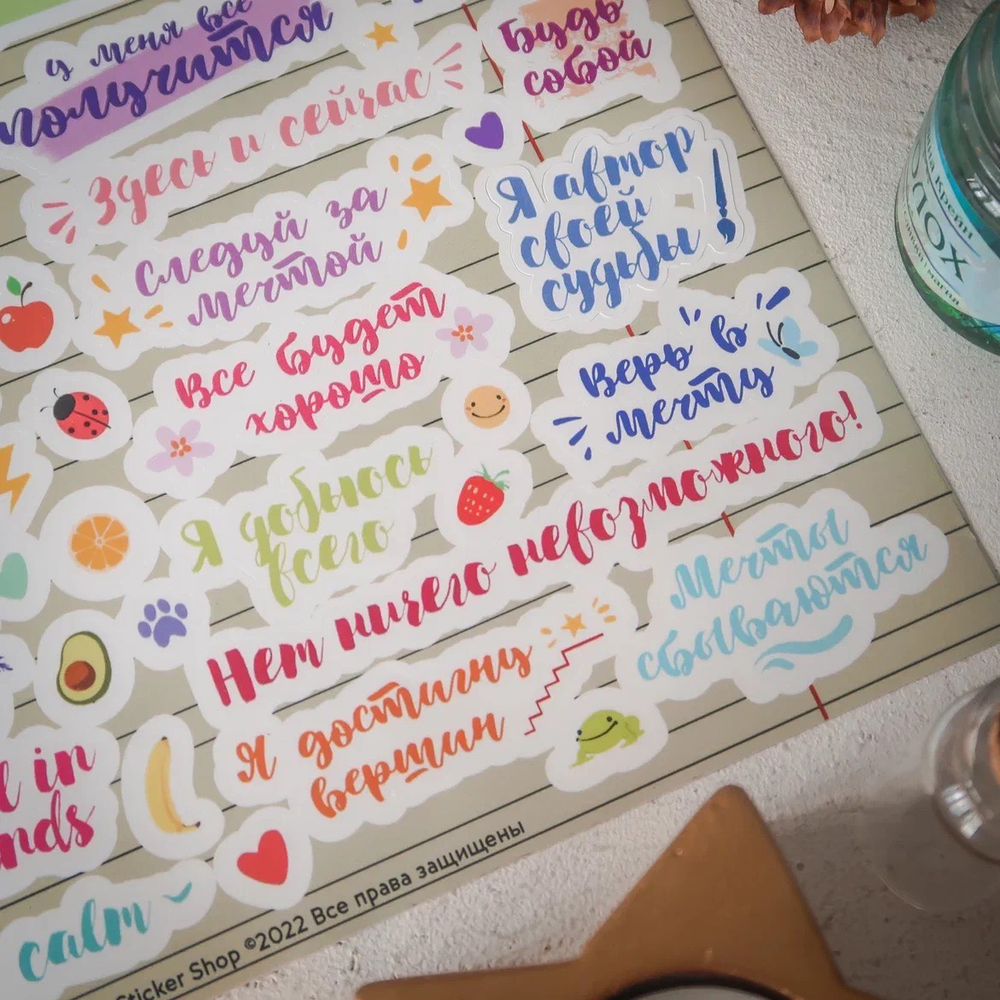 у меня все
получится
Будь
собой
Здесь и сейчас
Я автор
своей
судьбы
Следуй за
мечтой
Все будет
хорошо
Верь в
мечту
Я добьюсь
всего
Нет ничего невозможного!
Мечты
сбываются
Я достигну
вершин
in
calm
Sticker Shop ©2022 Все права защищены